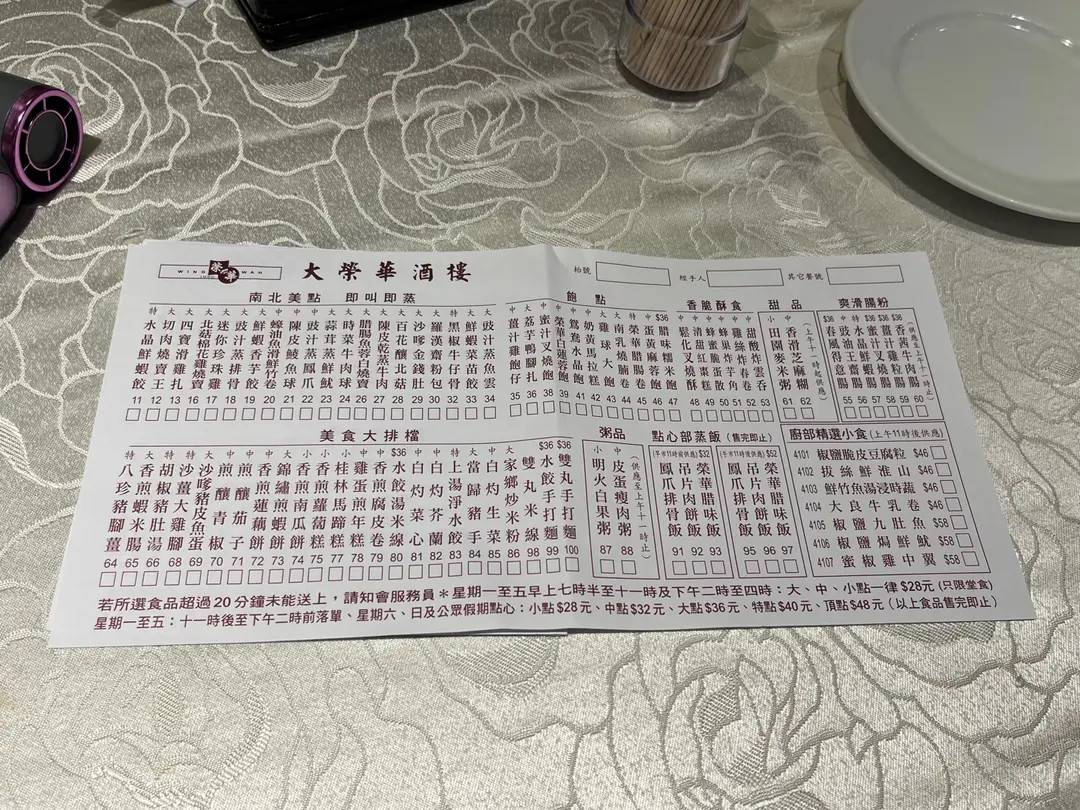 WING WAH
大榮華酒樓
枱號
經手人
其它餐號
南北美點 即叫即蒸
特 水晶鮮蝦餃 11
大 切肉燒賣王 12
大 四寶滑雞扎 13
大 北菇棉花雞燒賣 15
大 迷你珍珠雞 16
中 豉汁蒸排骨 17
中 鮮蝦香芋餃 19
中 蠔油魚滑鮮竹卷 20
中 陳皮鯪魚球 21
中 豉汁蒸鳳爪 22
大 蒜茸蒸鮮魷 23
小 時菜牛肉球 24
中 臘腸魚蓉白燒賣 26
中 陳皮乾蒸牛肉 27
大 百花釀北菇 28
大 沙嗲金錢肚 29
大 羅漢齋粉包 30
特 黑椒牛仔骨 32
大 鮮蝦菜苗餃 33
大 豉汁蒸魚雲 34
飽點
中 薑汁雞飽仔 35
大 荔芋鴨腳扎 36
中 蜜汁叉燒飽 38
中 榮華白蓮蓉飽 39
中 鴛鴦水晶飽 41
中 奶黃馬拉糕 42
大 雞球大飽 43
大 南乳燒腩卷 44
特 榮華臘腸卷 45
中 蛋黃麻蓉飽 46
$36 臘味糯米飽 47
香脆酥食
中 鬆化叉燒酥 48
小 清甜紅棗糕 49
小 蜂蜜脆蛋散 50
中 蜂巢炸芋角 51
中 雞絲炸春卷 52
中 甜酸炸雲吞 53
甜品
小 田園麥米粥 61
中 香滑芝麻糊 62
(上午十一時起供應)
爽滑腸粉
$36 春風得意腸 55
中 豉油王腸 56
特 水晶鮮蝦腸 57
$36 蜜汁叉燒腸 58
$36 薑汁雞粒腸 59
$36 香茜牛肉腸 60
(供應至上午十一時止)
美食大排檔
特 八珍豬腳薑 64
大 香煎蝦米腸 65
特 胡椒豬肚湯 66
特 沙薑大雞腳 67
大 沙嗲豬皮魚蛋 68
中 煎釀青椒 70
中 煎釀茄子 71
中 香煎蓮藕餅 72
大 錦繡煎蝦餅 73
小 香煎南瓜糕 74
小 香煎蘿蔔糕 75
小 桂林馬蹄糕 77
中 雞蛋煎年糕 78
中 香煎腐皮卷 79
$36 水餃湯米線 80
中 白灼菜心 81
中 白灼芥蘭 82
特 上湯淨水餃 83
大 當歸豬手 84
中 白灼生菜 85
大 家鄉炒米粉 86
雙丸米線 98
$36 水餃手打麵 99
$36 雙丸手打麵 100
粥品
小 明火白果粥 87
中 皮蛋瘦肉粥 88
(供應至上午十一時止)
點心部蒸飯 (售完即止)
(早市11時前供應) $32
鳳爪排骨飯 91
吊片肉餅飯 92
榮華臘味飯 93
(午市11時後供應) $52
鳳爪排骨飯 95
吊片肉餅飯 96
榮華臘味飯 97
廚部精選小食 (上午11時後供應)
4101 椒鹽脆皮豆腐粒 $46
4102 拔絲鮮淮山 $46
4103 鮮竹魚湯浸時蔬 $46
4104 大良牛乳卷 $46
4105 椒鹽九肚魚 $58
4106 椒鹽焗鮮魷 $58
4107 蜜椒雞中翼 $58
若所選食品超過20分鐘未能送上，請知會服務員＊星期一至五早上七時半至十一時及下午二時至四時：大、中、小點一律$28元 (只限堂食)
星期一至五：十一時後至下午二時前落單、星期六、日及公眾假期點心：小點$28元、中點$32元、大點$36元、特點$40元、頂點$48元 (以上食品售完即止)